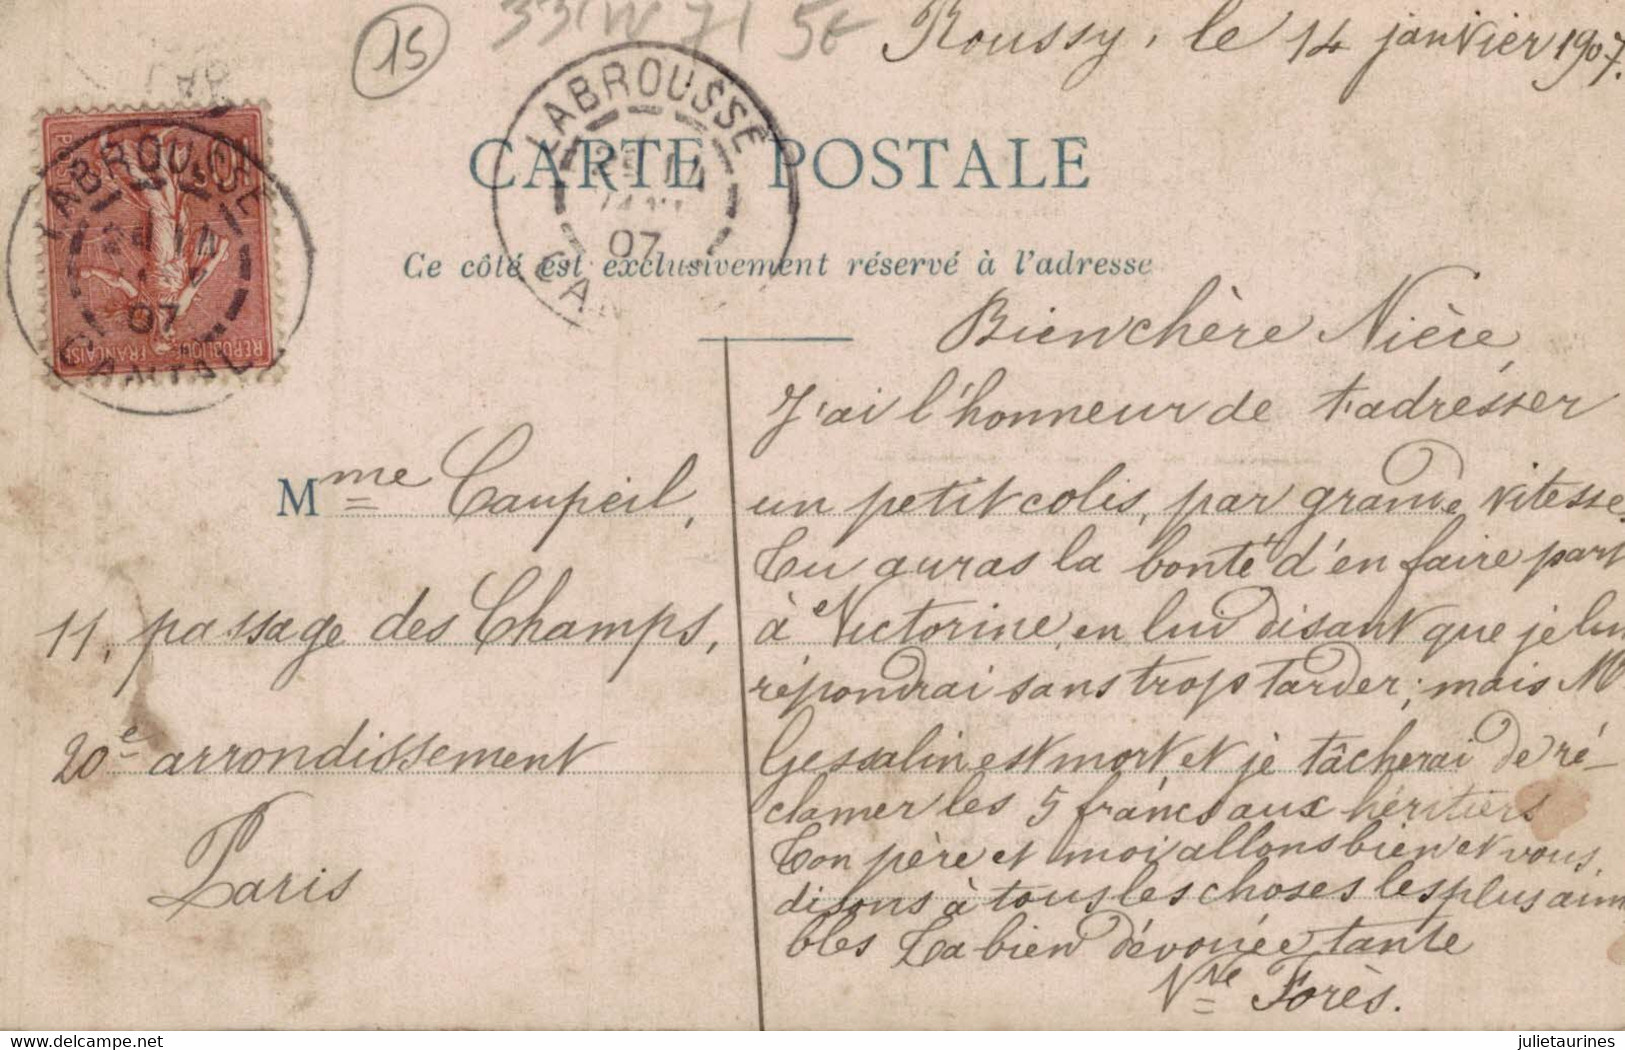 15
Roussy, le 14 janvier 1907.
LABROUSSE
07
CANTAL
REPUBLIQUE FRANÇAISE
POSTES
LABROUSSE
07
CARTE POSTALE
Ce côté est exclusivement réservé à l'adresse
Mme Caupeil,
11, passage des Champs,
20e arrondissement
Paris
Bien chère Nièce,
J'ai l'honneur de t'adresser
un petit colis, par grande vitesse.
Tu auras la bonté d'en faire part
à Victorine, en lui disant que je lui
répondrai sans trop tarder; mais Mr
Gessalin est mort et je tâcherai de ré-
clamer les 5 francs aux héritiers
Ton père et moi allons bien et vous
disons à tous les choses les plus aima
bles Ta bien dévouée tante
Vve Forès.
julietaurines